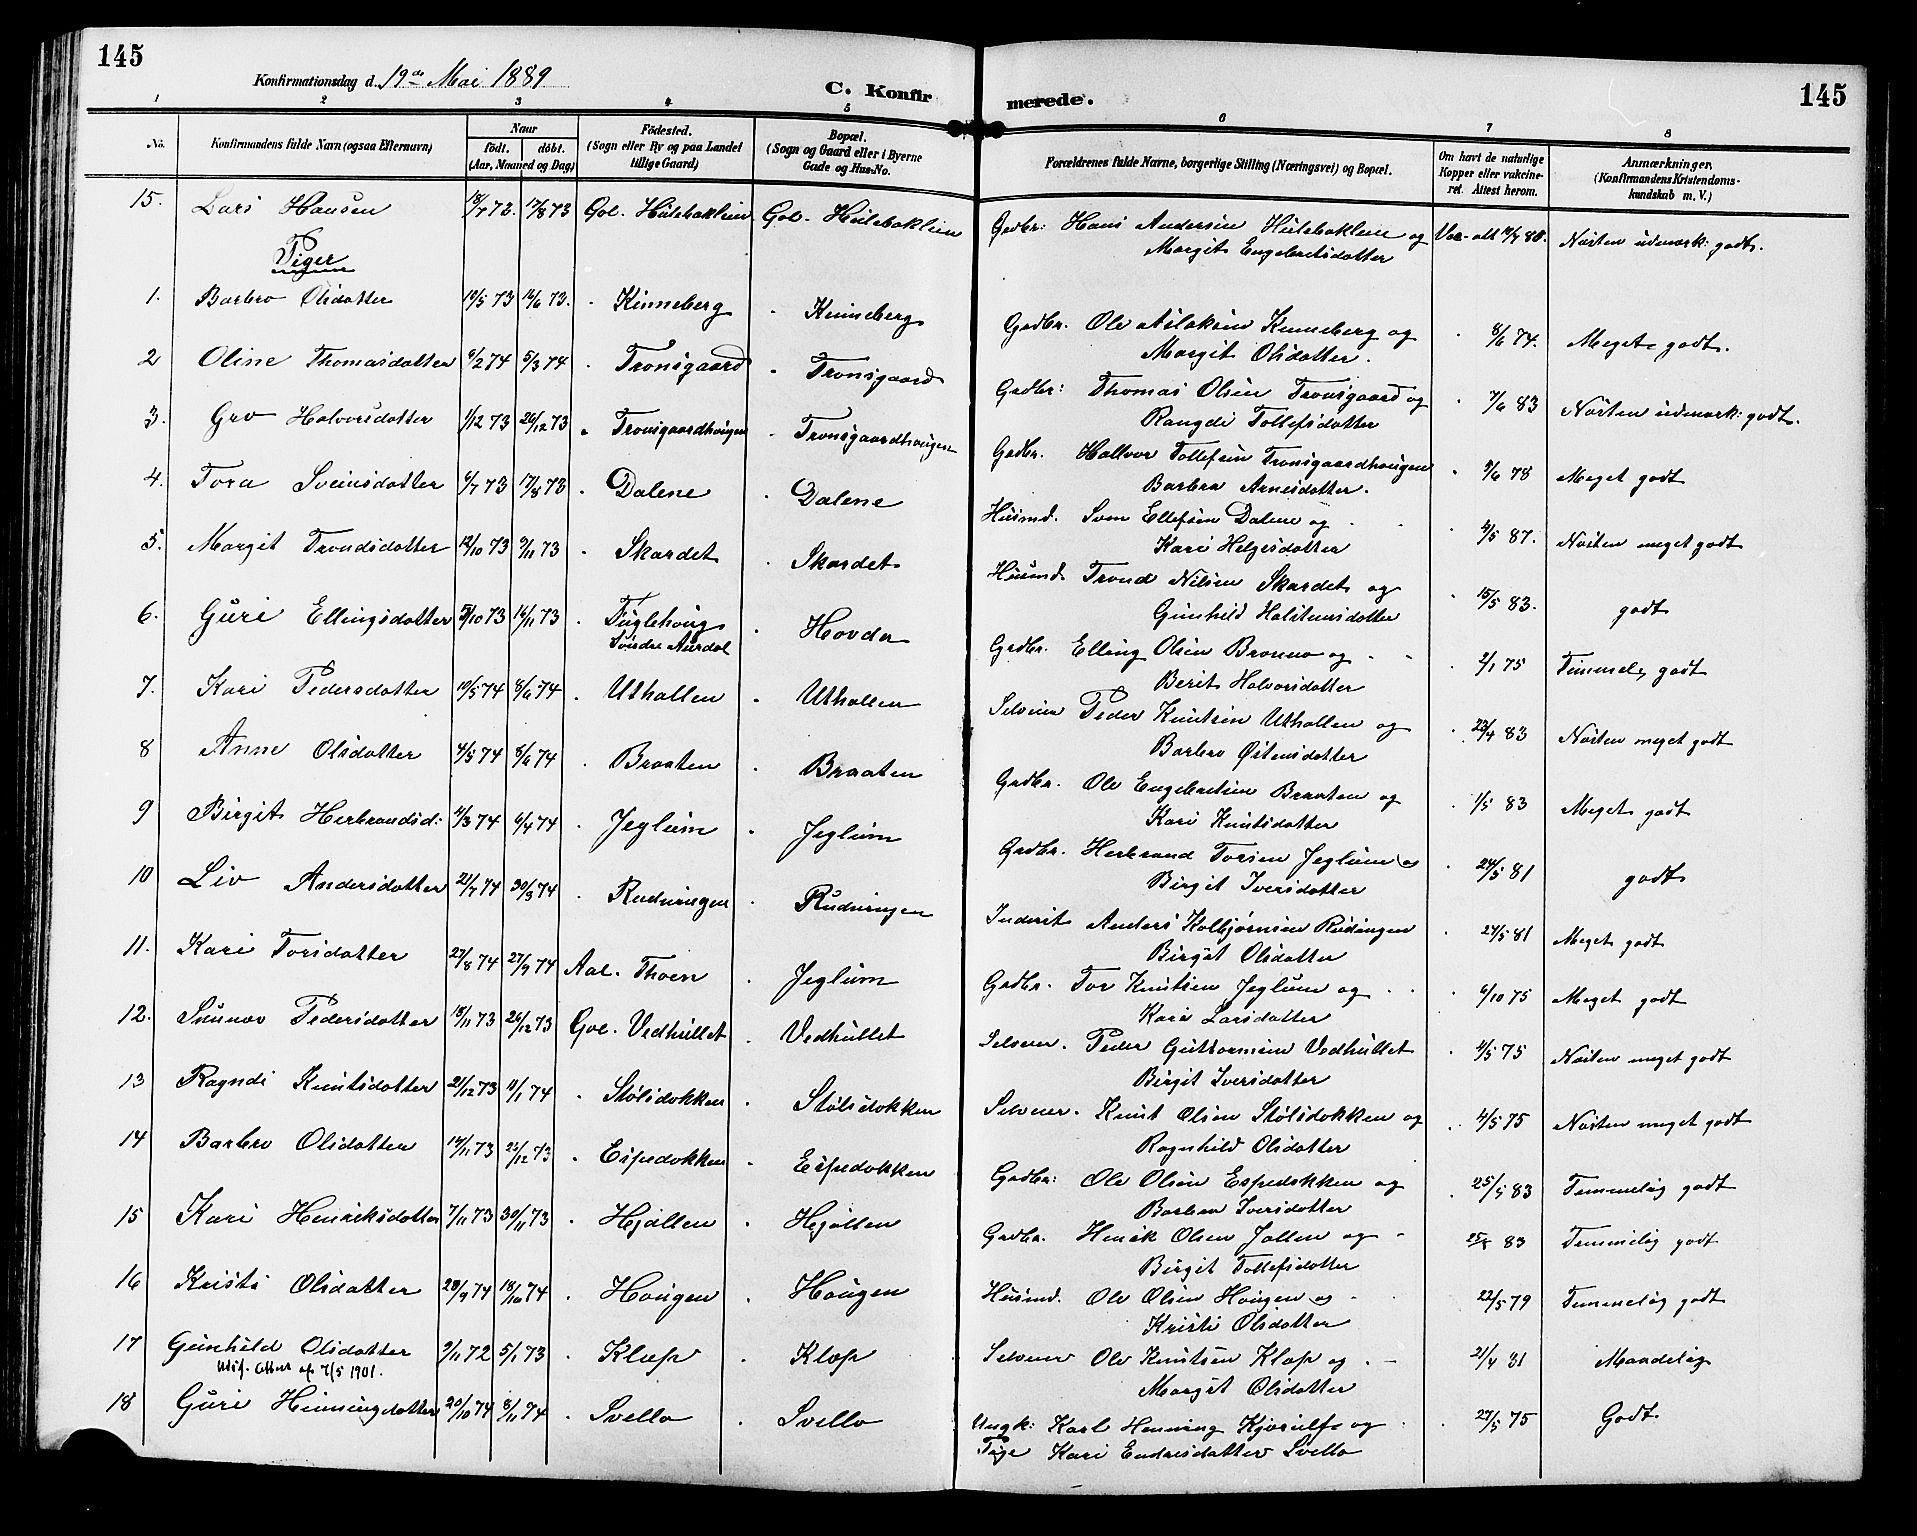 145
145
Konfirmationsdag d. 19de Mai 1889
C. Konfirmerede.
1 2 3 4 5 6 7 8
No. Konfirmandens fulde Navn (ogsaa Efternavn) Naar födt. döbt. (Aar, Maaned og Dag) Födested. (Sogn eller By og paa Landet tillige Gaard) Bopæl. (Sogn og Gaard eller i Byerne Gade og Hus-No. Forældrenes fulde Navne, borgerlige Stilling (Næringsvei) og Bopæl. Om havt de naturlige Kopper eller vakcineret. Attest herom. Anmærkninger, (Konfirmandens Kristendomskundskab m. V.)
15. Lars Hansen 17/8 73 Gol. Hulebaklien Gol. Hulebaklien Grdbr: Hans Andersen Hulebaklien og Næsten udmærk: godt.
Margit Engebretsdatter
Piger
1. Barbro Olsdatter 10/5 73 Kinneberg Kinneberg Grdbr. Ole Aslaksen Kinneberg og 8/6 74. Meget godt.
Margit Olsdatter.
2 Oline Thomasdatter 6/2 74 5/3 74 Tronsgaard Tronsgaard Grdbr: Thomas Olsen Tronsgaard og 7/6 83 Næsten udmærk: godt.
Rangdi Tollefsdatter
3. Gro Halvorsdatter 1/12 73 26/12 73 Tronsgaardhougen Tronsgaardhougen Grdbr. Hallvor Tollefsen Tronsgaardhougen 78 Meget godt
Barbra Arnesdatter.
4. Tora Sveinsdatter 6/7 73 17/8 73 Dalene Dalene Husmd. Sven Ellefsen Dalene og 4/5 87. Næsten meget godt
Kari Helgesdatter
5. Margit Trondsdatter 12/10 73 9/11 73 Skardet Skardet Husmd. Trond Nilsen Skardet og 15/5 83. godt
Gunhild Halstensdatter
6. Guri Ellingsdatter 5/10 73 16/11 73 Fuglehoug Søndre Aurdal Hovda Grdbr. Elling Olsen Bronno og 2/1 75 Temmelig godt
Berit Halvorsdatter
7. Kari Pedersdatter 10/5 74 8/6 74 Uthallen Uthallen Selveier Peder Knutsen Uthallen og 23/4 83 Næsten meget godt
Barbro Østensdatter
8 Anne Olsdatter 4/5 74 8/6 74 Braaten Braaten Grdbr. Ole Engebretsen Braaten og 1/5 83 Meget godt
Kari Knutsdatter
9 Birgit Herbrandsd: 11/3 74 6/4 74 Jeglum Jeglum Grdbr. Herbrand Torsen Jeglum og 24/5 81 godt
Birgit Iversdatter
10 Liv Andersdatter 21/7 74 30/3 74 Rudningen Rudningen Inderst Anders Kolbjørnsen Rudningen 24/5 81 Meget godt
Birgit Olsdatter
11. Kari Torsdatter 27/8 74 27/9 74 Aal. Thoen Jeglum Grdbr. Tor Knutsen Jeglum og 6/10 75 Meget godt
Kari Larsdatter
12. Sunnov Pedersdatter 18/11 73 26/12 73 Gol. Vedhullet Vedhullet Selveier. Peder Guttormsen Vedhullet 4/5 75 Næsten meget godt
Birgit Iversdatter
13 Ragndi Knutsdatter 21/12 73 11/1 74 Stølsdokken Stølsdokken Selveier. Knut Olsen Stølsdokken og 4/5 75 Næsten meget godt
Ragnhild Olsdatter
14 Barbro Olsdatter 14/11 73 25/12 73 Espedokken Espedokken Grdbr: Ole Olsen Espedokken og 25/5 83 Temmelig godt
Barbro Iversdatter
15 Kari Henriksdatter 7/11 73 30/11 73 Hjallen Hjallen Grdbr. Henrik Olsen Jallen og 83 Temmelig godt
Birgit Tollefsdatter
16 Kristi Olsdatter 28/9 74 18/10 74 Hougen Hougen Husmd. Ole Olsen Hougen og 22/5 79 Temmelig godt
Kristi Olsdatter
17 Gunhild Olsdatter 2/11 72 5/1 73 Klop Klop Selveier Ole Knutsen Klop og 21/4 31 Maadelig
Uds. Attest af 7/5 1901. Margit Olsdatter
18 Guri Henningsdatter 20/10 74 8/11 74 Svello Svello Ungk: Karl Henning Kjerulf og 27/5 75 Godt.
Pige Kari Endresdatter Svello